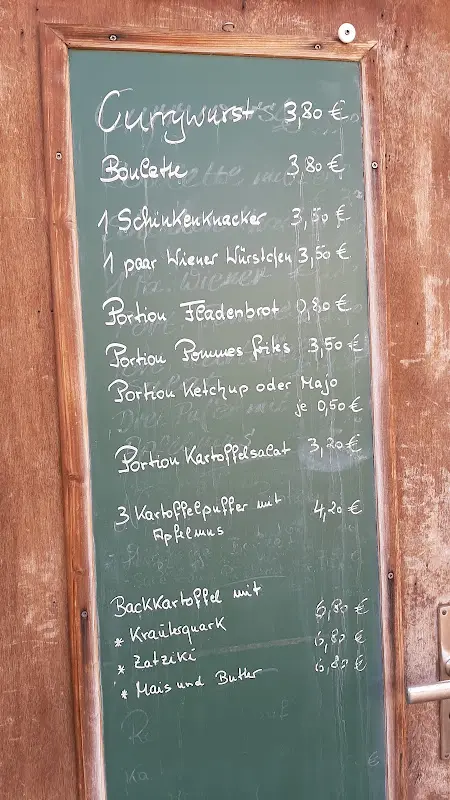 Currywurst 3,80 €
Boulette 3,80 €
1 Schinkenknacker 3,50 €
1 paar Wiener Würstchen 3,50 €
Portion Fladenbrot 0,80 €
Portion Pommes frites 3,50 €
Portion Ketchup oder Majo
je 0,50 €
Portion Kartoffelsalat 3,20 €
3 Kartoffelpuffer mit 4,20 €
Apfelmus
Backkartoffel mit
* Kräuterquark 6,80 €
* Zatziki 6,80 €
* Mais und Butter 6,80 €